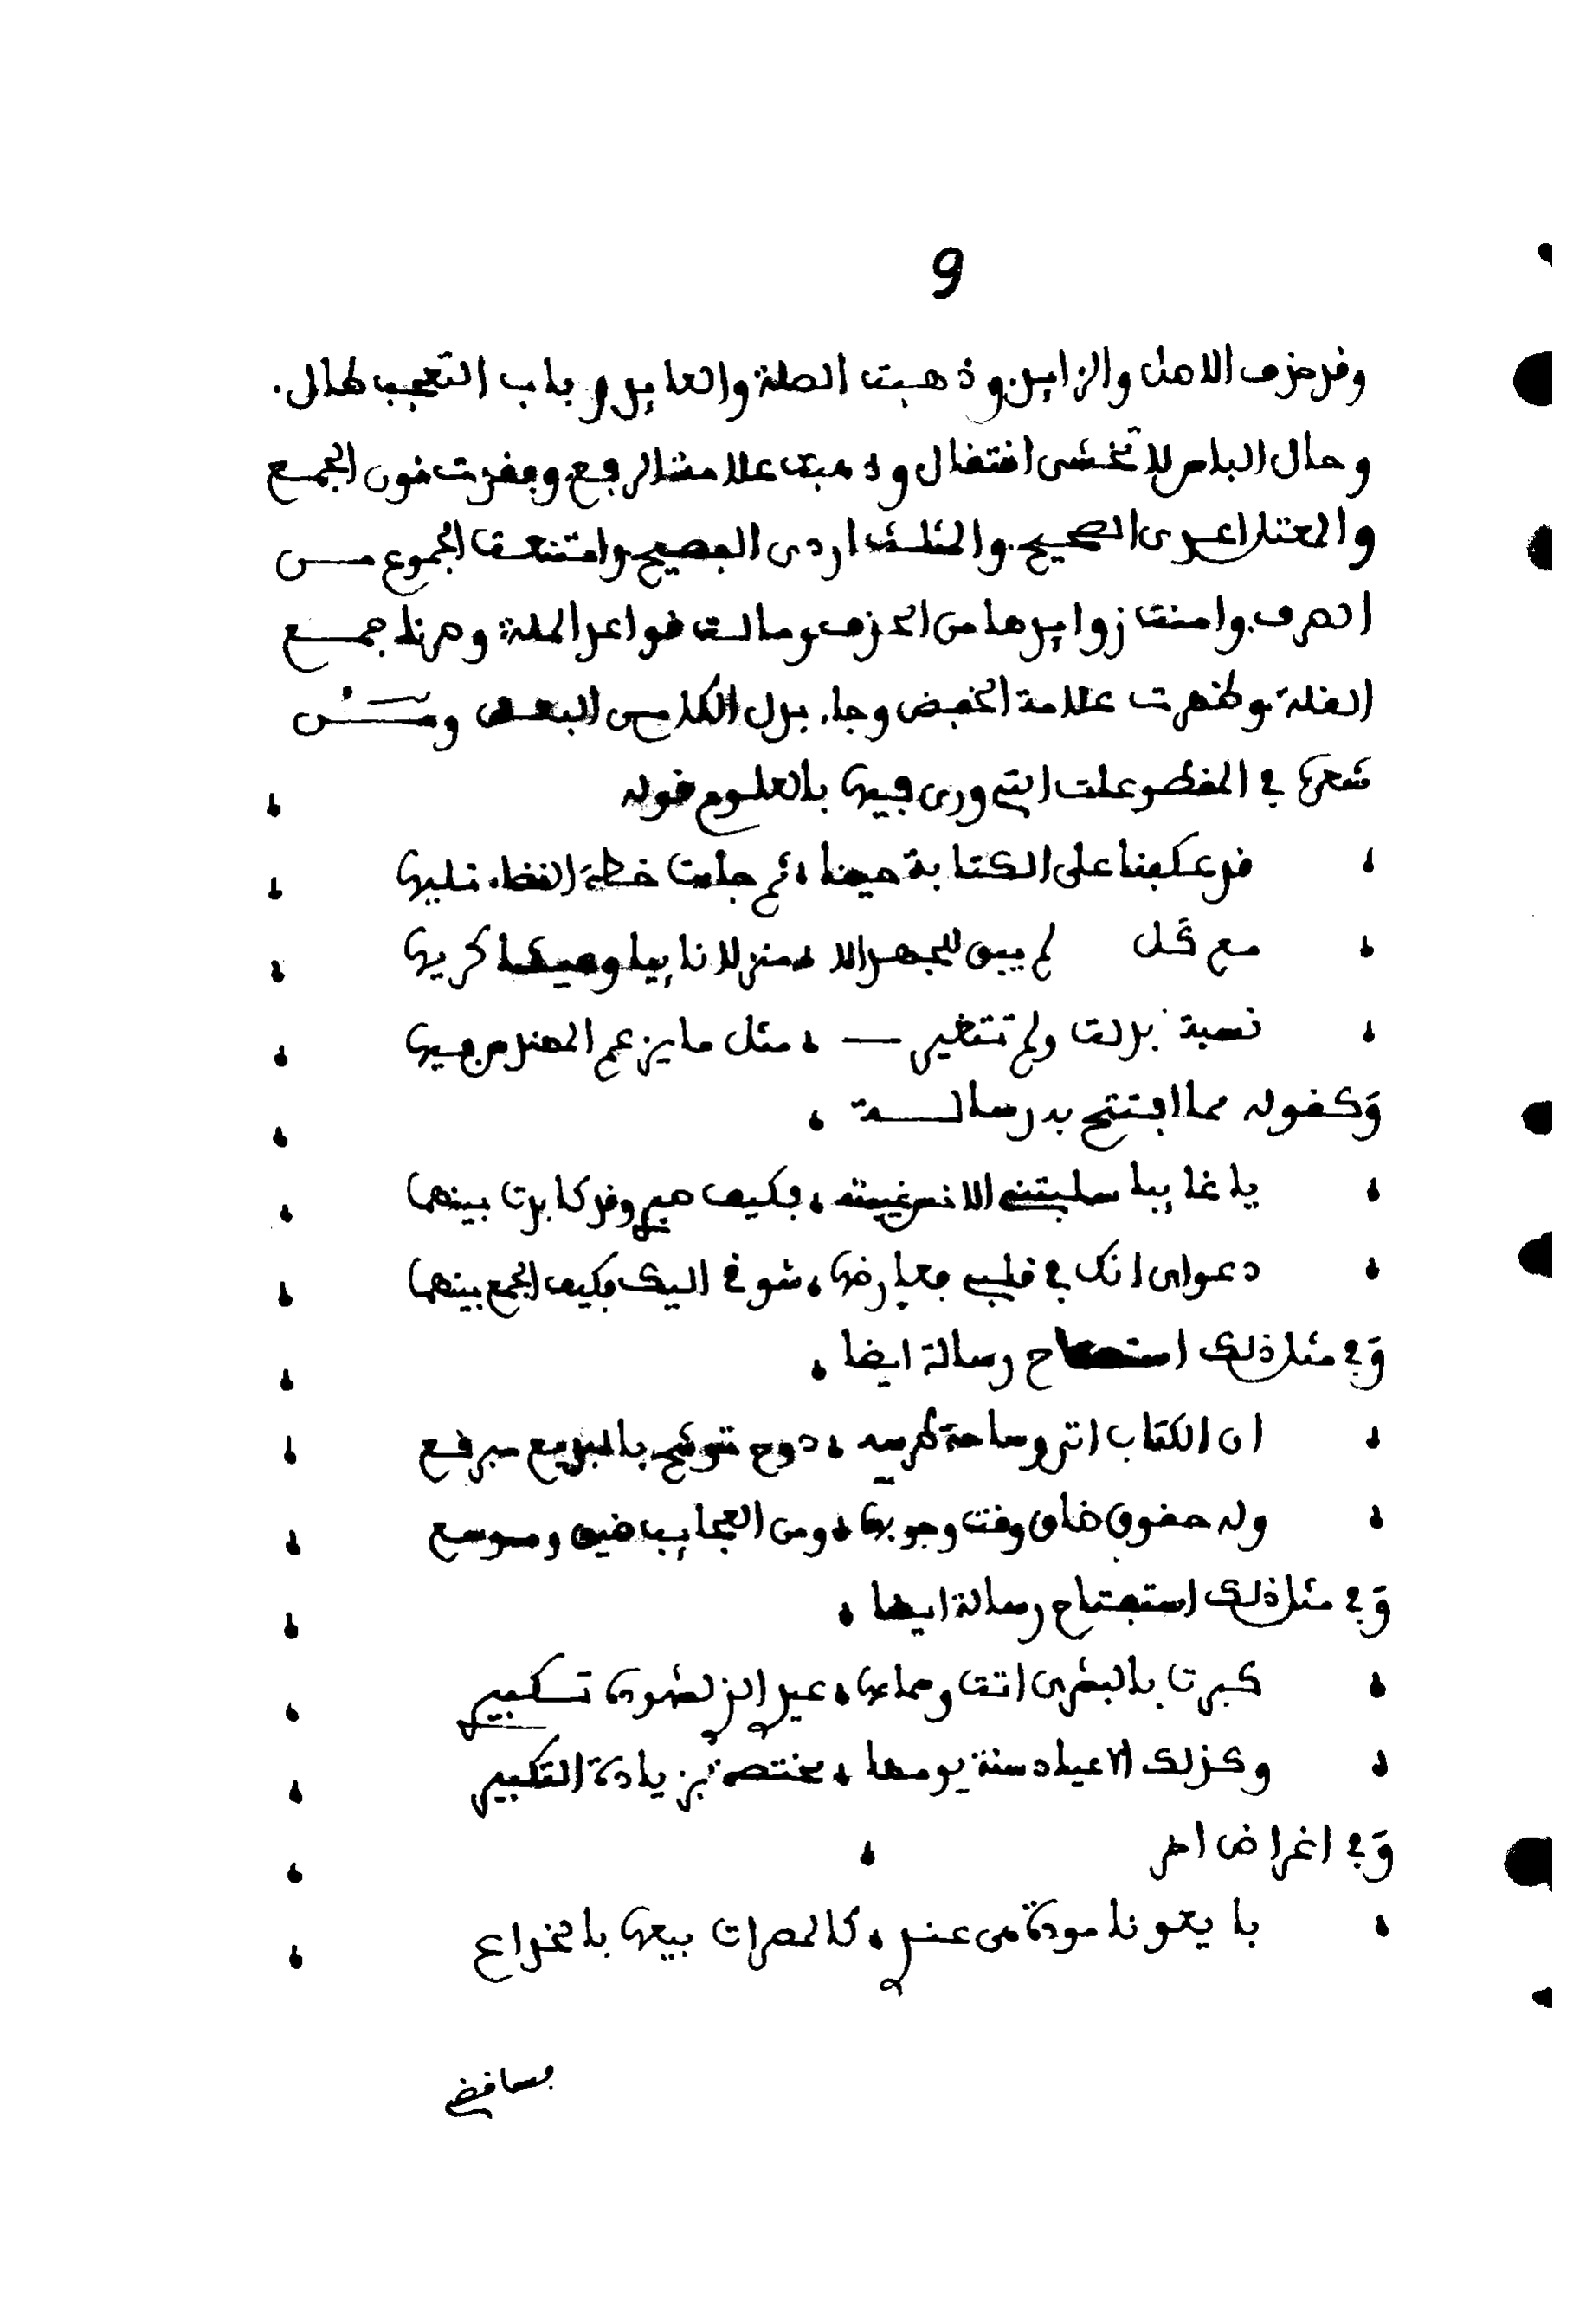 9
وقد حذف الاصل والزايد وذهبت الصلة والعايد وباب التعجب طال.
وحال الباس لا تخشى انتقال وذهبت علامة الرفع وفقدت نون الجمع
والمعتل اعدى الصحيح والمثلث اردى الفصيح وامتنعت الجموع من
الصرف وامنت زوايدها من الحذف ومالت قواعد الملة وصرنا جمع
القلة وظهرت علامة الخفض وجاء بدل الكل من البعض ومن
شعره في المقطوعات التي ورى فيها بالعلوم قوله
قد عكفنا على الكتابة حينا ثم جاءت خطة القضاء تليها
مع كل لم يبق للجهد الا منزلا نابيا وعيشا كريها
نسبة بدلت ولم تتغير مثل ما يزعم المهندس فيها
وكقوله مما افتتح به رسالة
يا غايبا سلبتني الانس غيبته فكيف صبري وقد كابدت بينهما
دعواى انك في قلبي يعارضها شوقي اليك فكيف الجمع بينهما
وفي مثل ذلك استفتاح رسالة ايضا
ان الكتاب اتى وساحة طرسه دوح توشح بالبديع مرقع
وله حقوق ضاق وقت وجوبها ومن العجايب ضيق وموسع
وفي مثل ذلك استفتاح رسالة ايضا
كبرت بالبشرى اتت وسماعها عيدي الذي لشهوده تكبيري
وكذلك الاعياد سنة يومها مختصة بزيادة التكبير
وفي اغراض اخر
بايعونا مودة هي عندي كالمصرات بيعها بالخداع
فساقضي